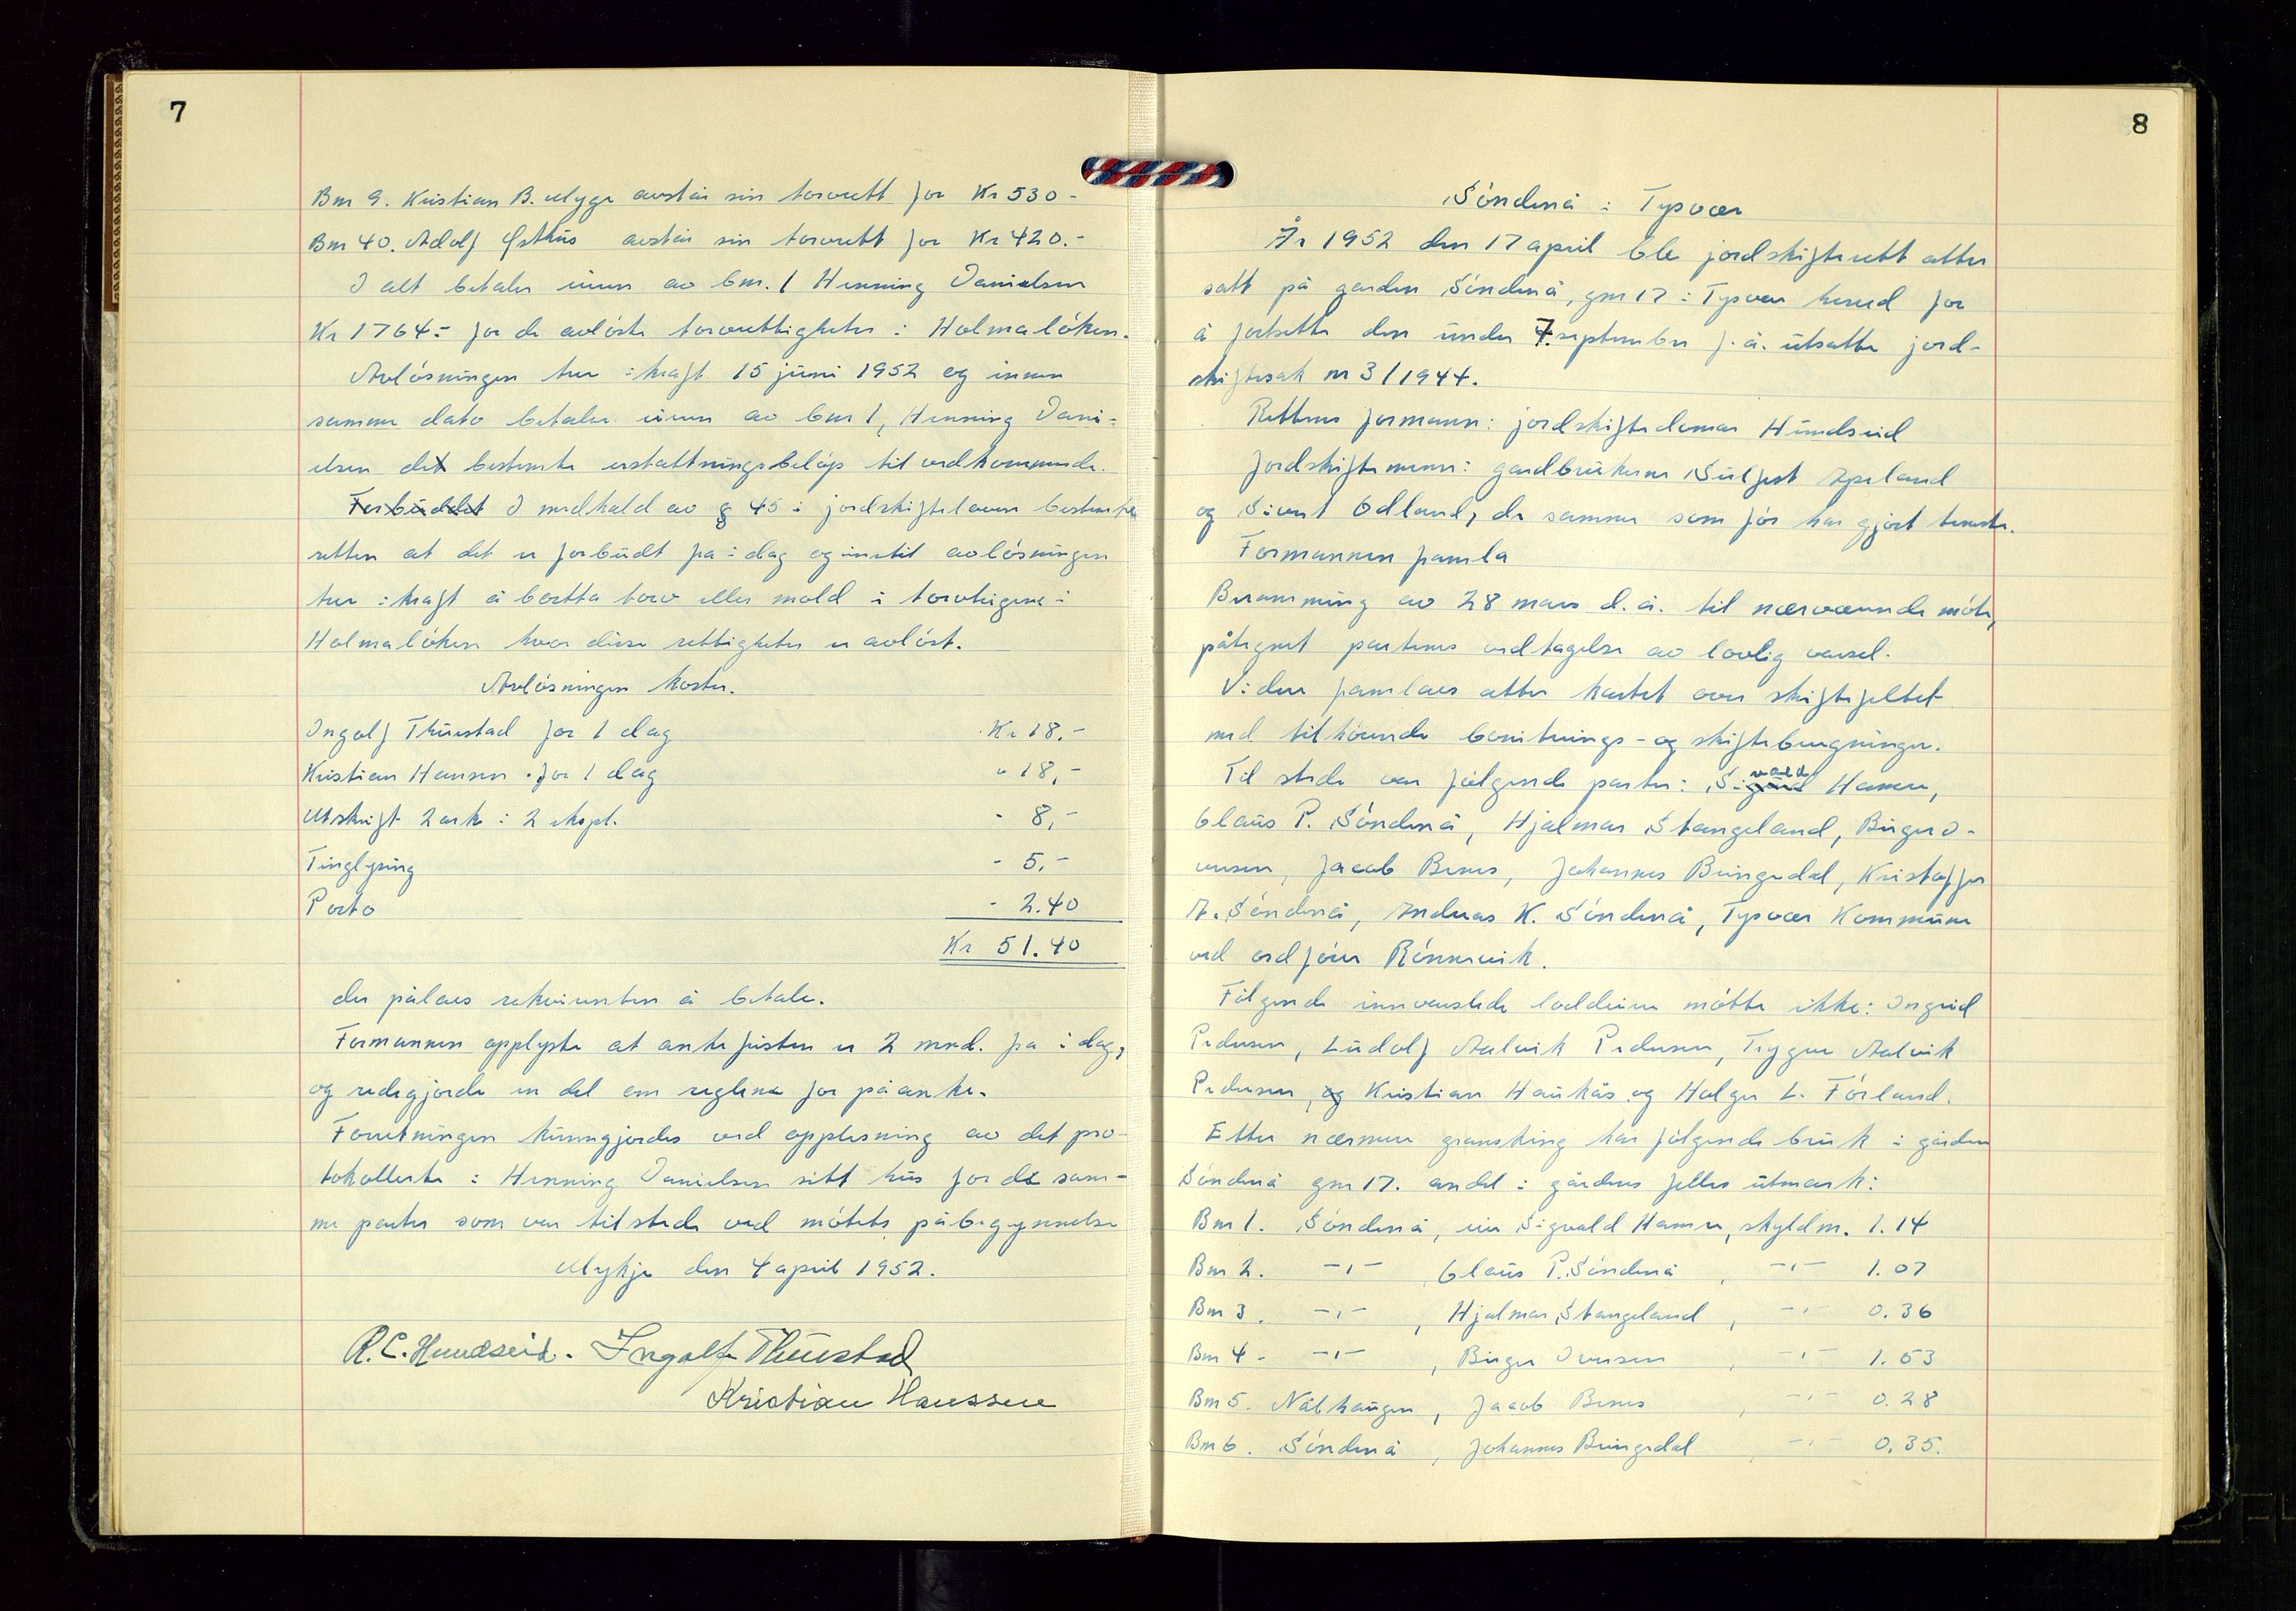 7
Bnr 9. Kristian B. Myge avstår sin torvrett for Kr 530-
Bnr 40. Adolf Østhus avstår sin torvrett for Kr 420.-
I alt betaler eieren av bnr. 1 Henning Danielsen
Kr 1764.- for de avløste torvrettigheter i Holmaløken.
Avløsningen trer i kraft 15 juni 1952 og innen
samme dato betaler eieren av bnr 1, Henning Dani-
elsen det bestemte erstatningsbeløp til vedkommende.
Forbuddet I medhald av § 45 i jordskifteloven bestemte
retten at det er forbudt fra i dag og inntil avløsningen
trer i kraft å bortta torv eller mold i torvteigene i
Holmaløken hvor disse rettigheter er avløst.
Avløsningen koster.
Ingolf Thuestad for 1 dag Kr 18.-
Kristian Hansen for 1 dag " 18,-
Utskrift 2 ark i 2 ekspl. - 8,-
Tinglysing - 5.-
Porto - 2.40
Kr 51.40
der pålaes rekvirenten å betale.
Formannen opplyste at ankefristen er 2 mnd. fra i dag,
og redegjorde en del om reglene for påanke.
Forretningen kunngjordes ved opplesning av det pro-
tokollerte i Henning Danielsen sitt hus for de sam-
me parter som var tilstede ved møtets påbegynnelse
Mykje den 4 april 1952.
R.C. Hundseid. Ingolf Thuestad
Kristian Hanssen
8
Söndenå i Tysvær
År 1952 den 17 april ble jordskifterett atter
satt på garden Söndenå, gnr 17 i Tysvær herred for
å fortsette den under 7. september f.å. utsatte jord-
skiftesak nr 3/1944.
Rettens formann: jordskiftedomar Hundseid
Jordskiftemenn: gardbrukerne Sulfest Apeland
og Sivert Odland, de samme som før har gjort teneste.
Formannen framla
Beramming av 28 mars d.å. til nærværende møte,
påtegnet partenes vedtagelse av lovlig varsel.
Videre framlaes atter kartet over skiftefeltet
med tilhørende boniterings- og skifteberegninger.
Til stede var følgende parter: Sigurd vald Hamre,
Claus P. Söndenå, Hjalmar Stangeland, Birger I-
versen, Jacob Benes, Johannes Bringedal, Kristoffer
A. Söndenå, Andreas K. Söndenå, Tysvær Kommune
ved ordfører Rönnevik.
Følgende innvarslede loddeiere møtte ikke: Ingrid
Pedersen, Ludolf Aalvik Pedersen, Trygve Aalvik
Pedersen, og Kristian Haukås og Holger L. Førland.
Etter nærmere gransking har følgende bruk i gården
Söndenå gnr 17. andel i gårdens felles utmark:
Bnr 1. Söndenå, eier Sigvald Hamre, skyldm. 1.14
Bnr 2. -"- , Claus P. Söndenå , -"- 1.07
Bnr 3. -"- , Hjalmar Stangeland , -"- 0.36
Bnr 4 - -"- , Birger Iversen , -"- 1.53
Bnr 5. Nåthaugen, Jacob Benes , -"- 0.28
Bnr 6. Söndenå , Johannes Bringedal , -"- 0.35.